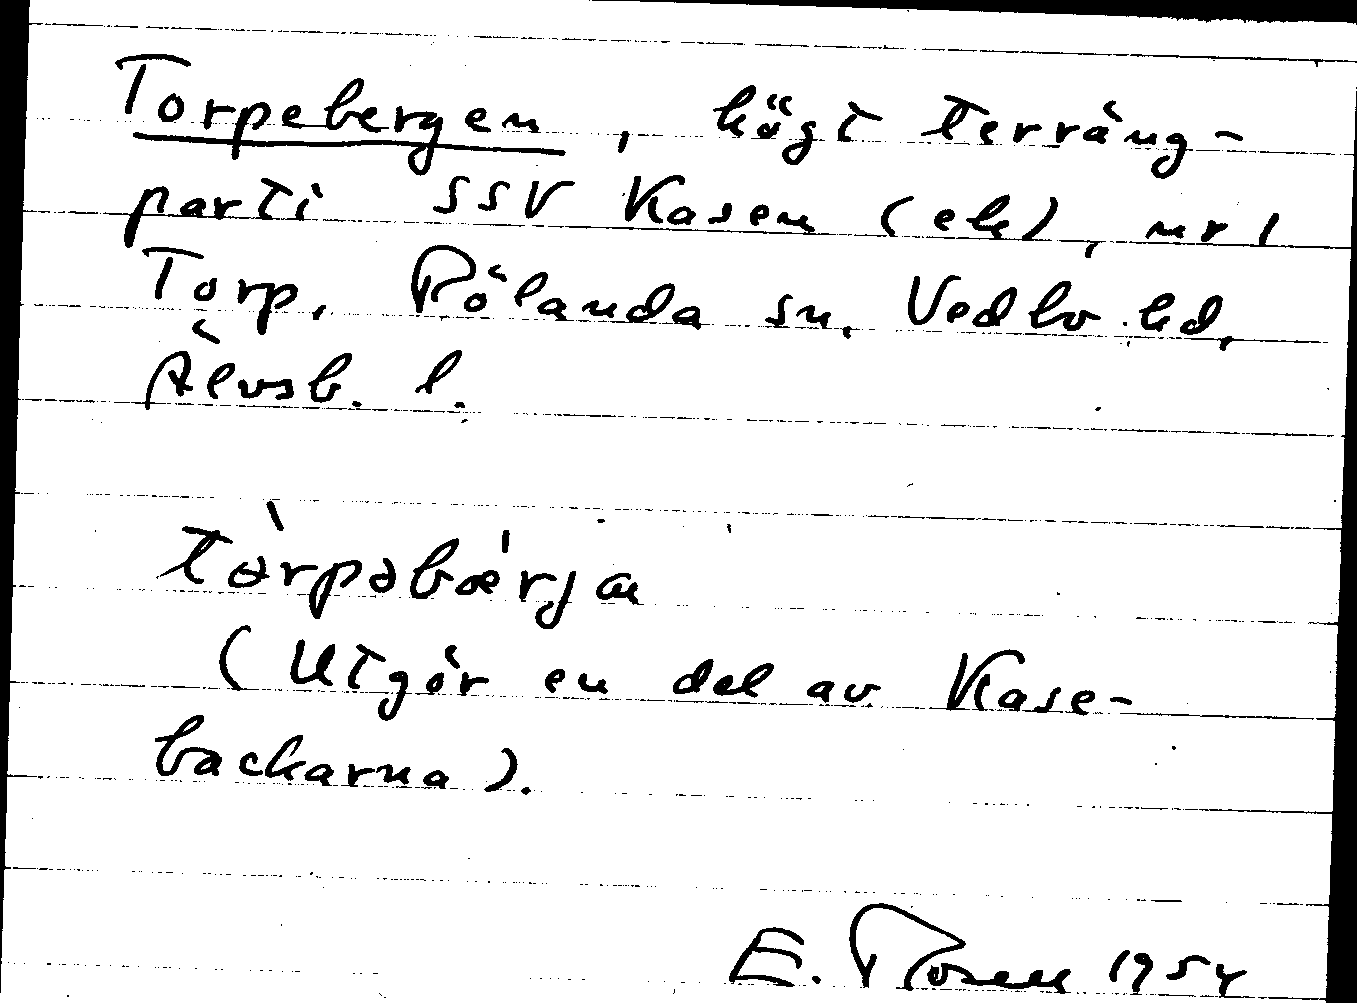 Torpebergen, högt terräng-
parti SSV Kasen (ek), nr 1
Torp, Rölanda sn, Vedbo hd,
Älvsb. l.
tòrpəbǽrja
(Utgör en del av Kase-
backarna).
E. Rosell 1954